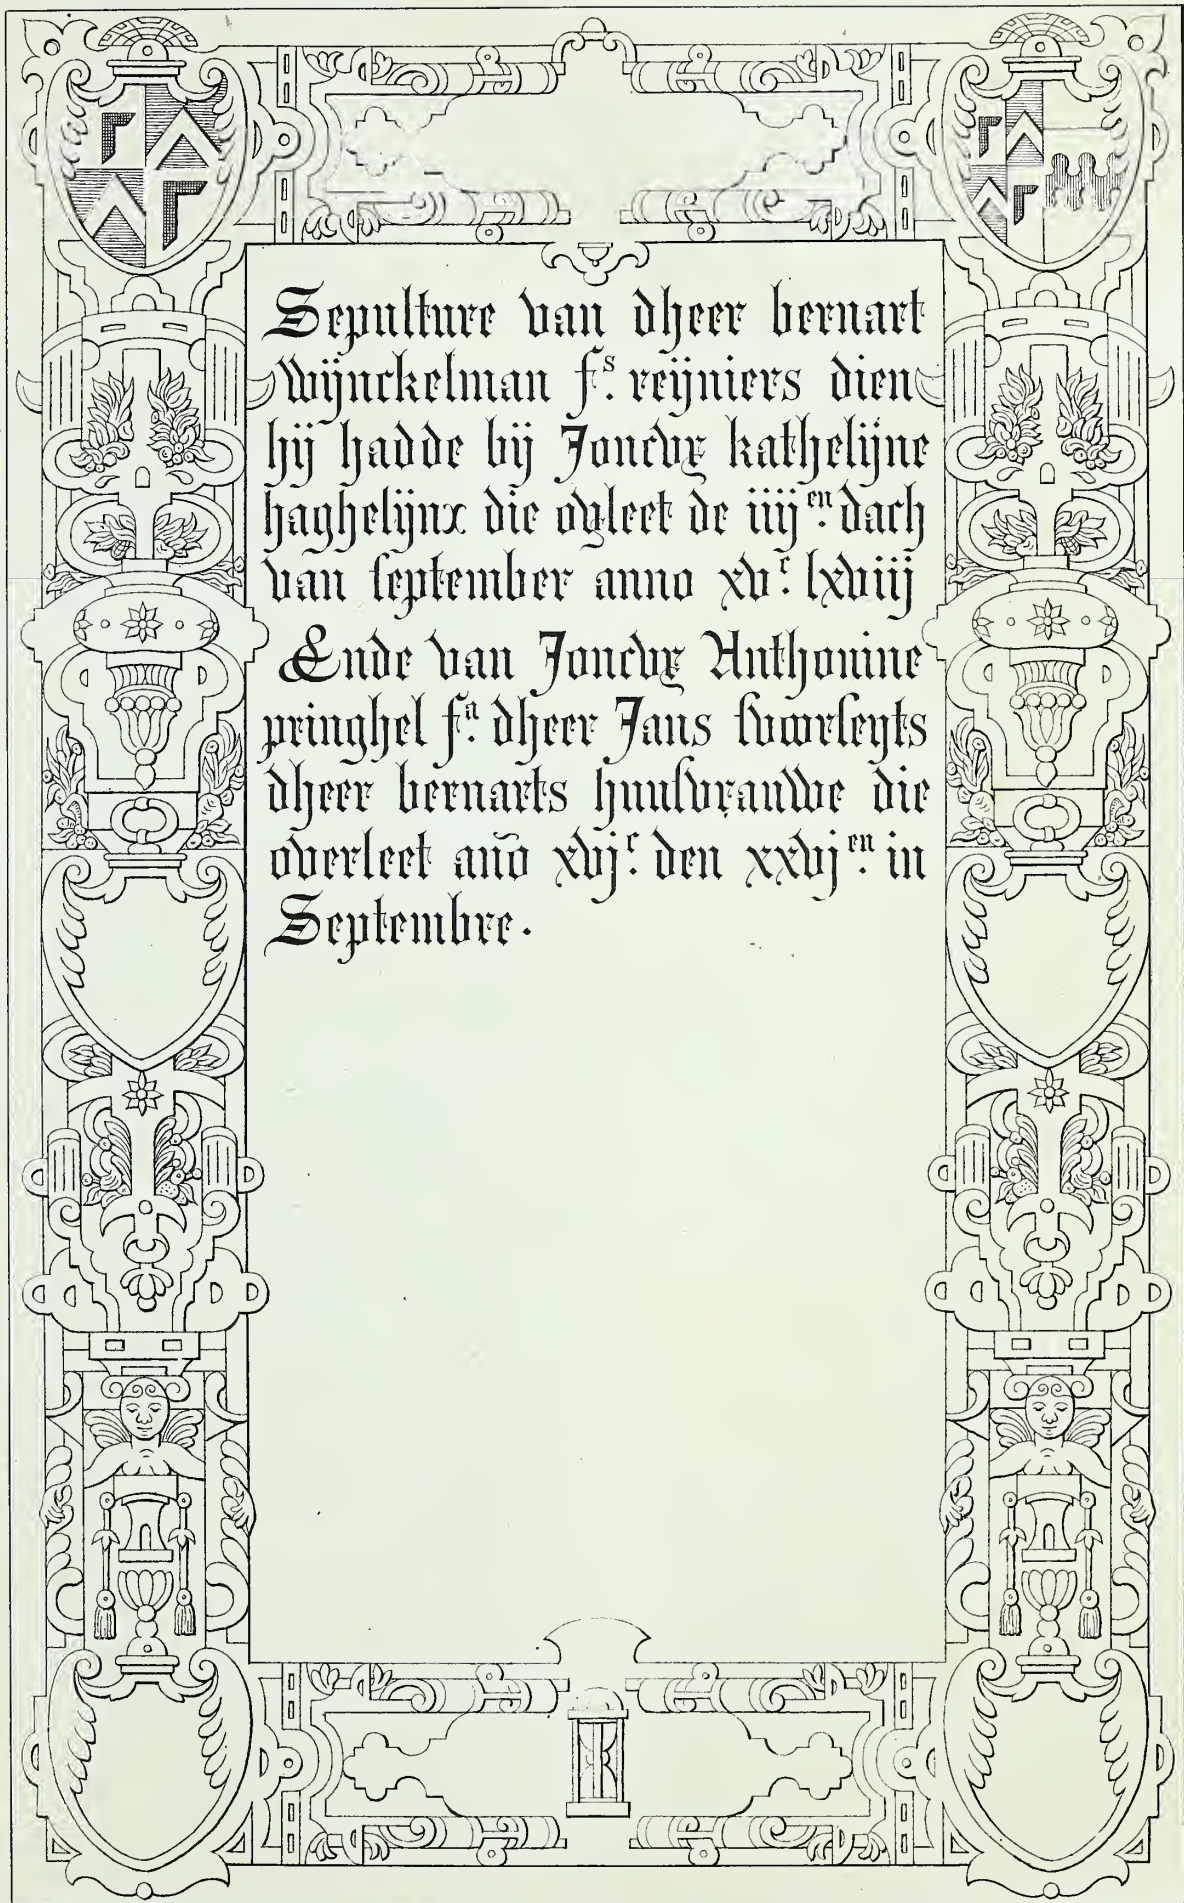 Sepulture van dheer bernart
wijnckelman fˢ. reijniers dien
hij hadde bij Joncvᵉ kathelijne
haghelijnx die ovleet de iiijᵉⁿ. dach
van september anno xvᶜ. lxviij
Ende van Joncvᵉ Anthonine
pringhel fᵃ. dheer Jans
dheer bernarts huusvrauwe die
overleet año xvjᶜ. den xxvjᵉⁿ. in
Septembre.